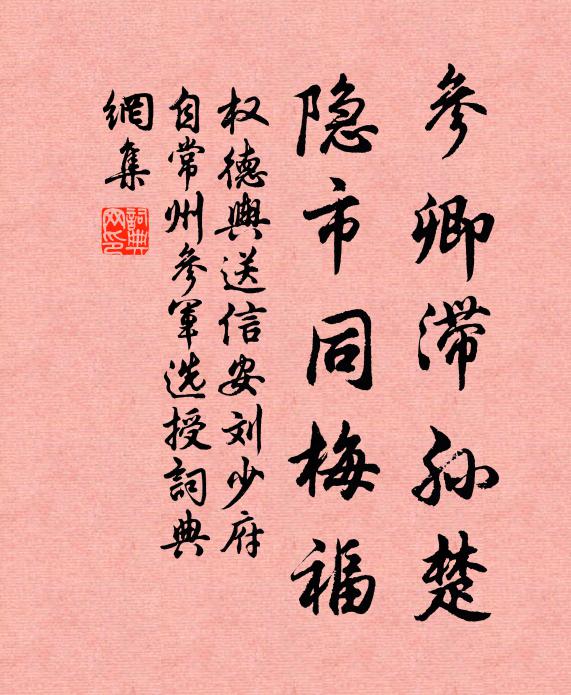 参卿滞孙楚
隐市同梅福
权德舆送信安刘少府
自常州参军选授詞典
網集
詞典
网印